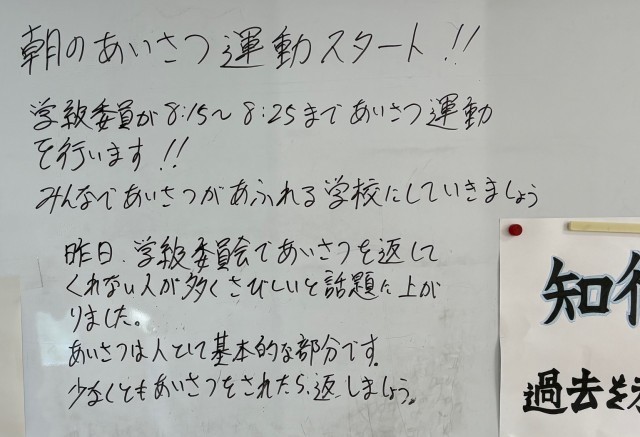 朝のあいさつ運動スタート!!
学級委員が8:15~8:25まであいさつ運動
を行います!!
みんなであいさつがあふれる学校にしていきましょう
昨日、学級委員会であいさつを返して
くれない人が多くさびしいと話題に上が
りました。
あいさつは人として基本的な部分です。
少なくともあいさつをされたら、返しましょう。
知行
過去を